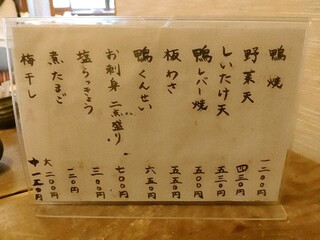 鴨焼 一二〇〇円
野菜天 四三〇円
しいたけ天 五三〇円
鴨レバー焼 五〇〇円
板わさ 五五〇円
鴨くんせい 六五〇円
お刺身二点盛り 七〇〇円
塩らっきょう 三〇〇円
煮たまご 一二〇円
梅干し 大二〇〇円
中一五〇円